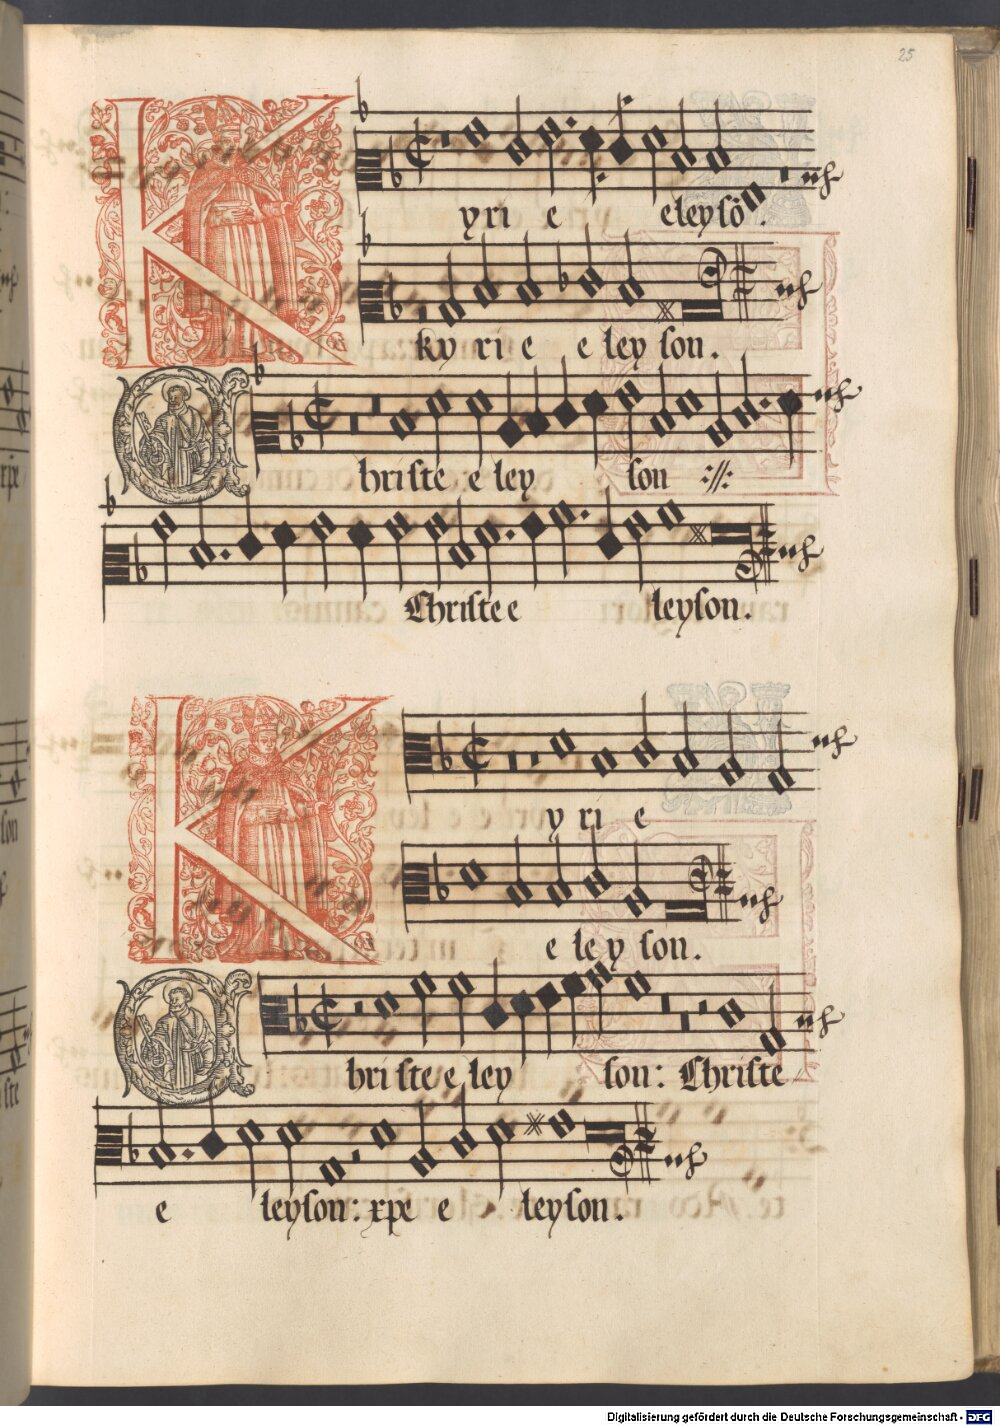 25
Kyri e eleysō.
kyri e e ley son.
Christe e ley son :||:
Christe e leyson.
Kyri e
e ley son.
Christe e ley son: Christe
e leyson: xpe e leyson.
Digitalisierung gefördert durch die Deutsche Forschungsgemeinschaft - DFG